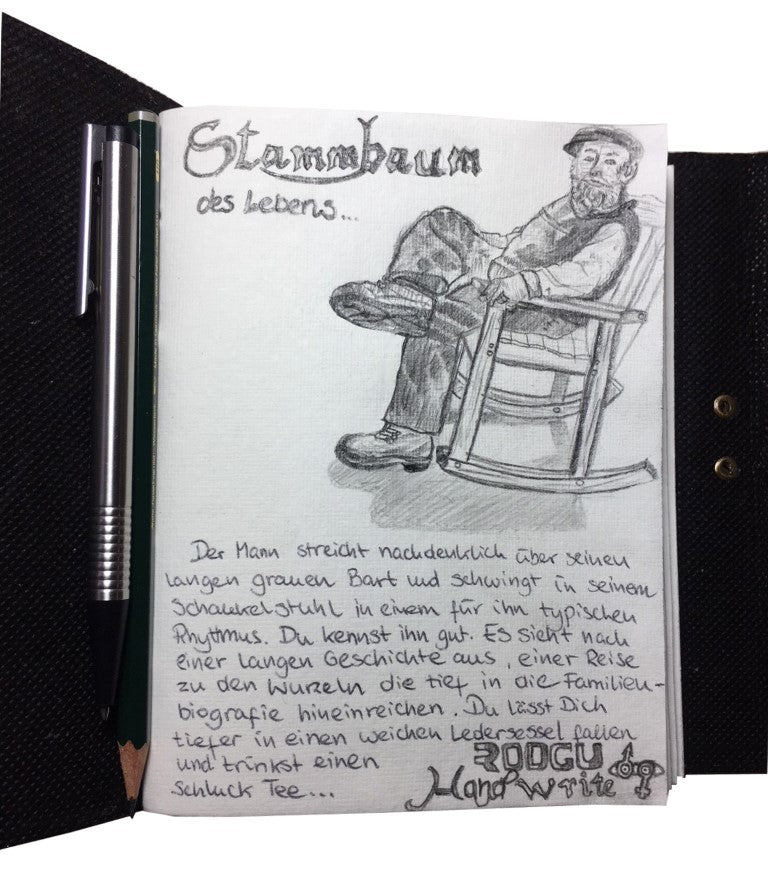 Stammbaum
des Lebens...
Der Mann streicht nachdenklich über seinen
langen grauen Bart und schwingt in seinem
Schaukelstuhl in einem für ihn typischen
Rhythmus. Du kennst ihn gut. Es sieht nach
einer langen Geschichte aus, einer Reise
zu den Wurzeln die tief in die Familien-
biografie hineinreichen. Du lässt Dich
tiefer in einen weichen Ledersessel fallen
und trinkst einen
Schluck Tee...
ROOGU
Handwrite